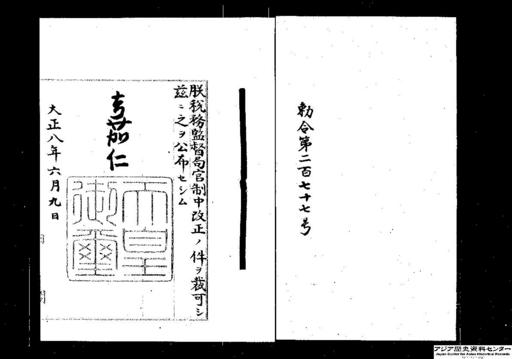 勅令第二百七十七号
朕税務監督局官制中改正ノ件ヲ裁可シ
茲ニ之ヲ公布セシム
嘉仁
天皇
御璽
大正八年六月九日
アジア歴史資料センター
Japan Center for Asian Historical Records